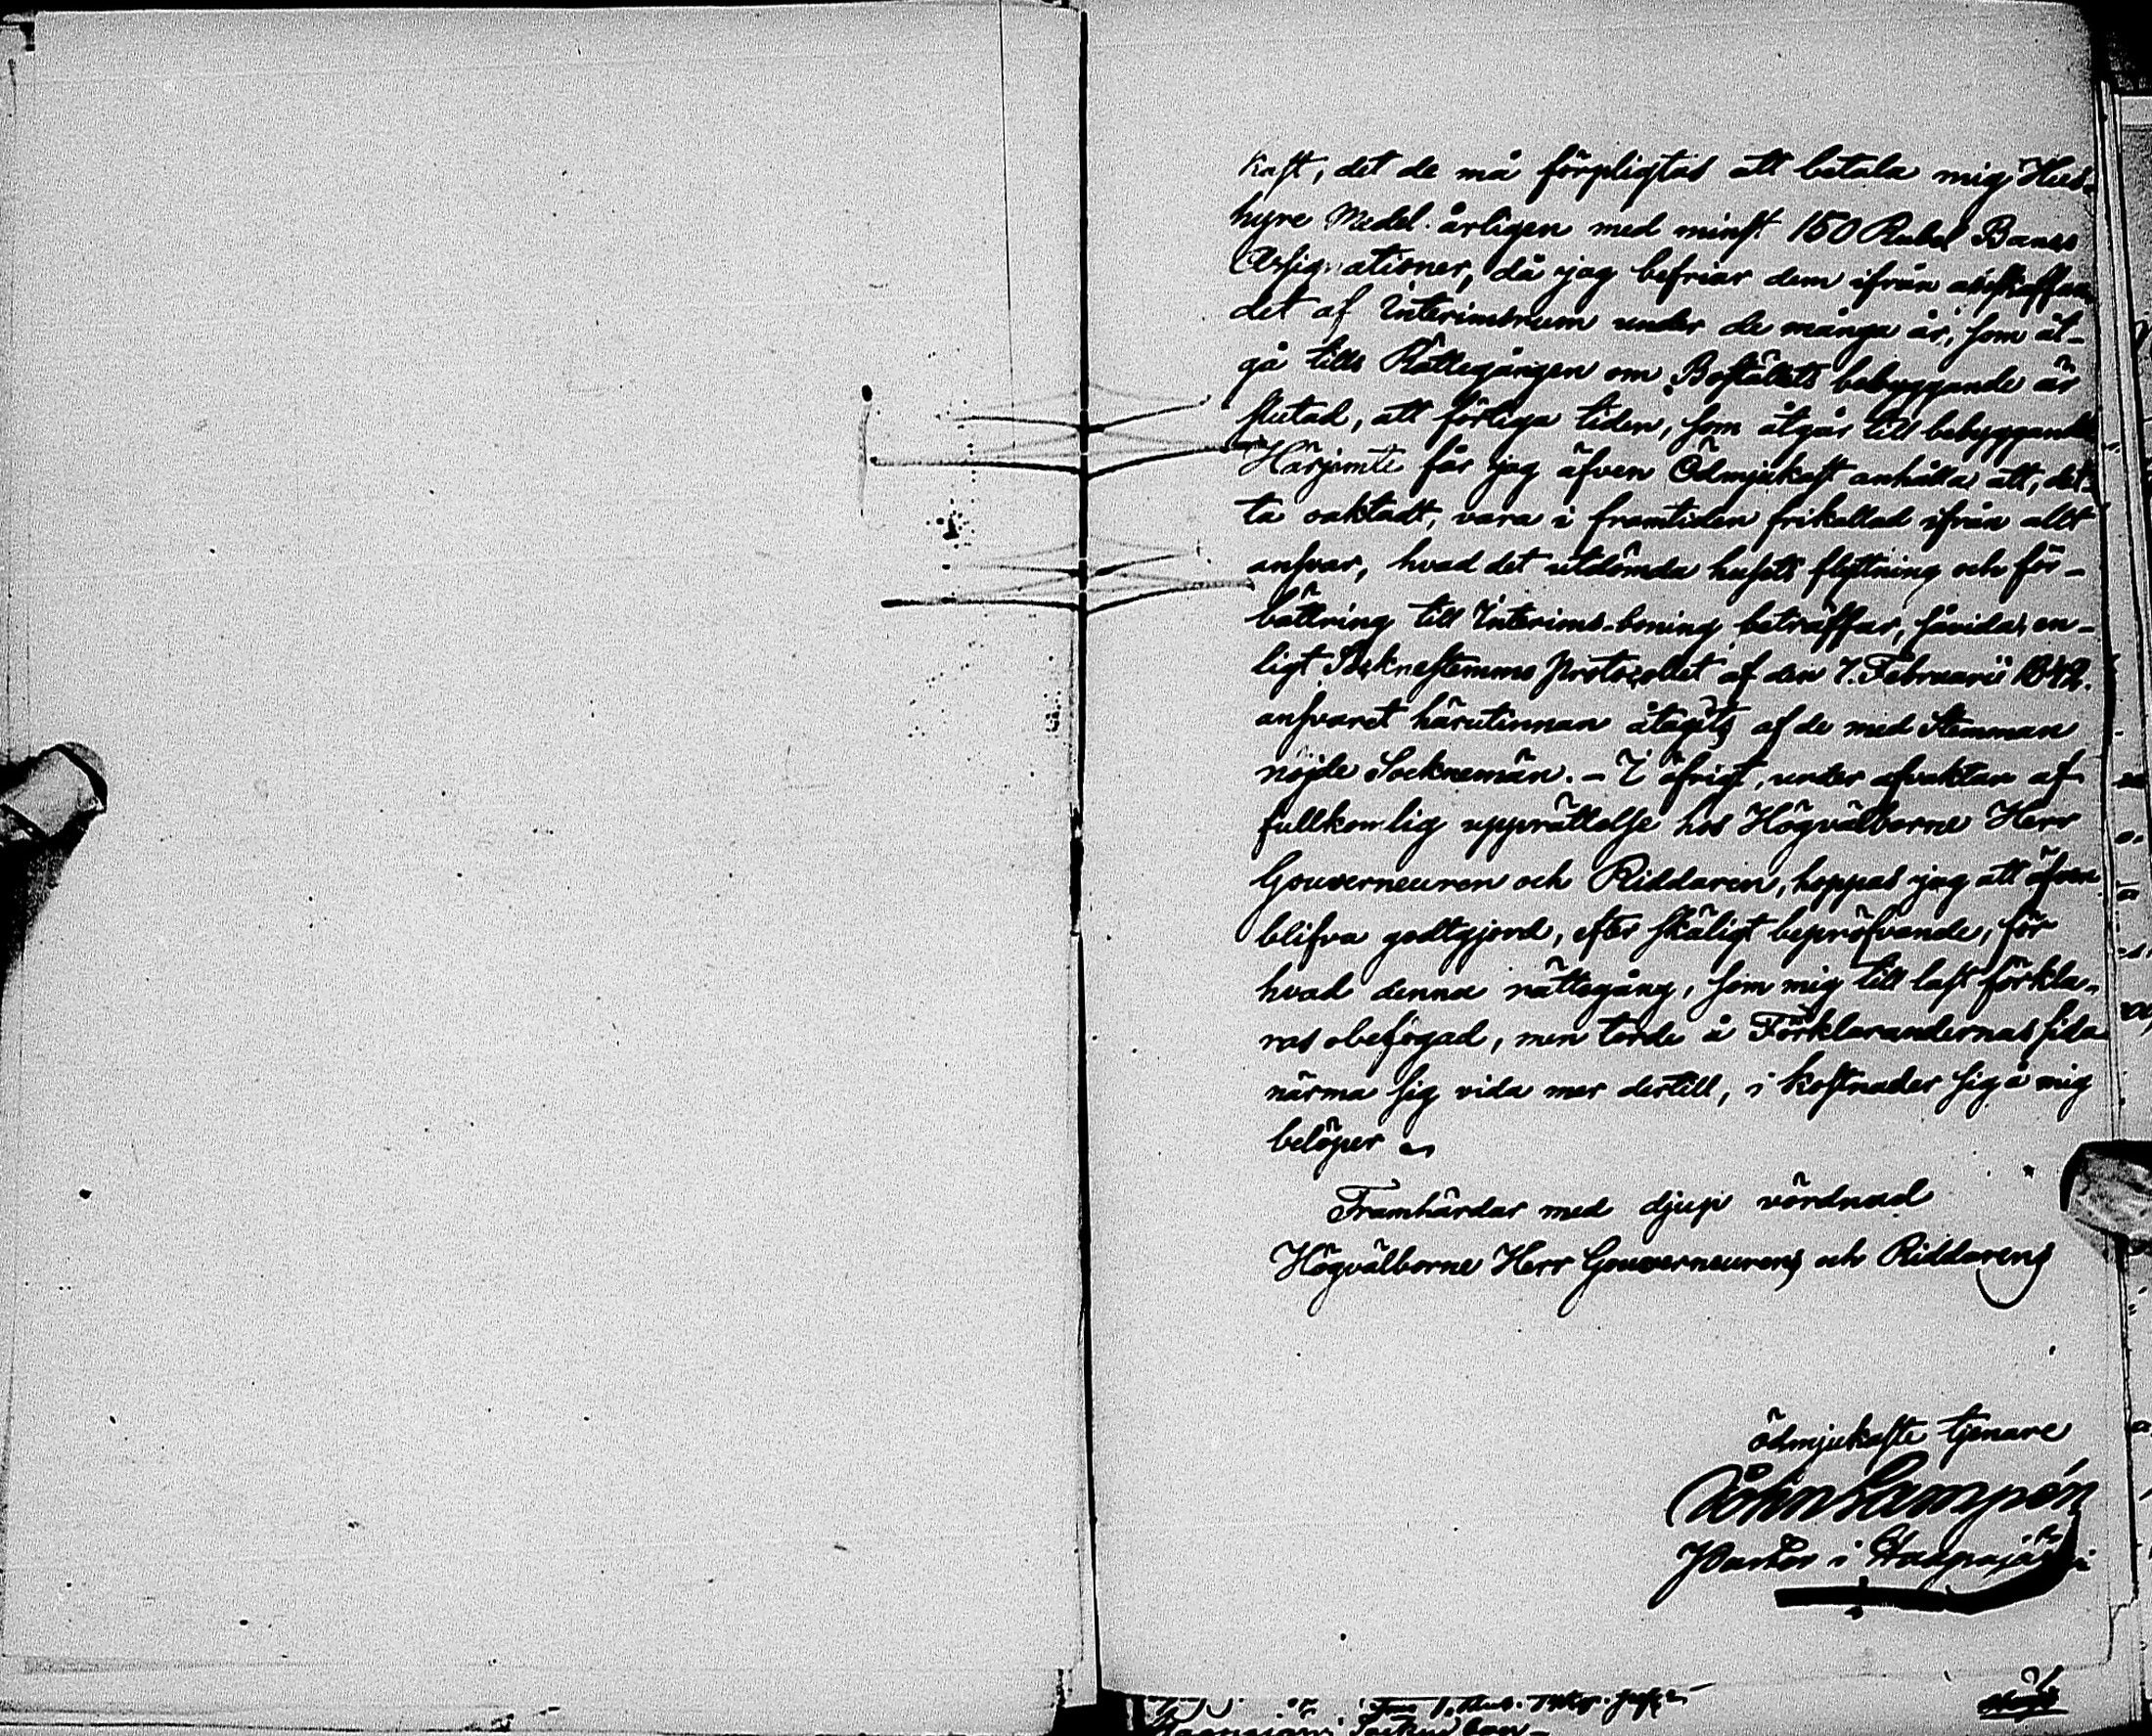 kast, det de må förpligtas att betala mig Hus-
hyre Medel årligen med minst 150 Rubel Banco
Assignationer, då jag befriar dem ifrån anskaffan-
det af Interimsrum under de många år, som åt-
gå tills Rättegången om Boställets bebyggande är
slutad, att förtiga tiden, som åtgår till bebyggandet
Härjemte får jag äfven Ödmjukast anhålla att, det-
ta oaktadt, vara i framtiden frikallad ifrån allt
ansvar, hvad det utdömda husets flyttning och för-
bättring till Interims-boning beträffar, såvida, en-
ligt Sockenstemmo Protocollet af den 7. Februarii 1842.
ansvaret härutinnan åtagits af de med Stemman
nöjde Socknemän. - I öfrigt, under afvaktan af
fullkomlig upprättelse hos Högvälborne Herr
Gouverneuren och Riddaren, hoppas jag att äfven
blifva godtgjord, efter skäligt bepröfvande, för
hvad denna rättegång, som mig till last förkla-
ras obefogad, men torde å Förklarandernas sida
närma sig vida mer dertill, i kostnader sig å mig
belöper
Framhärdar med djup vördnad
Högvälborne Herr Gouverneurens och Riddarens
ödmjukaste tjenare
Johan Lampén
Pastor i Haapajärvi